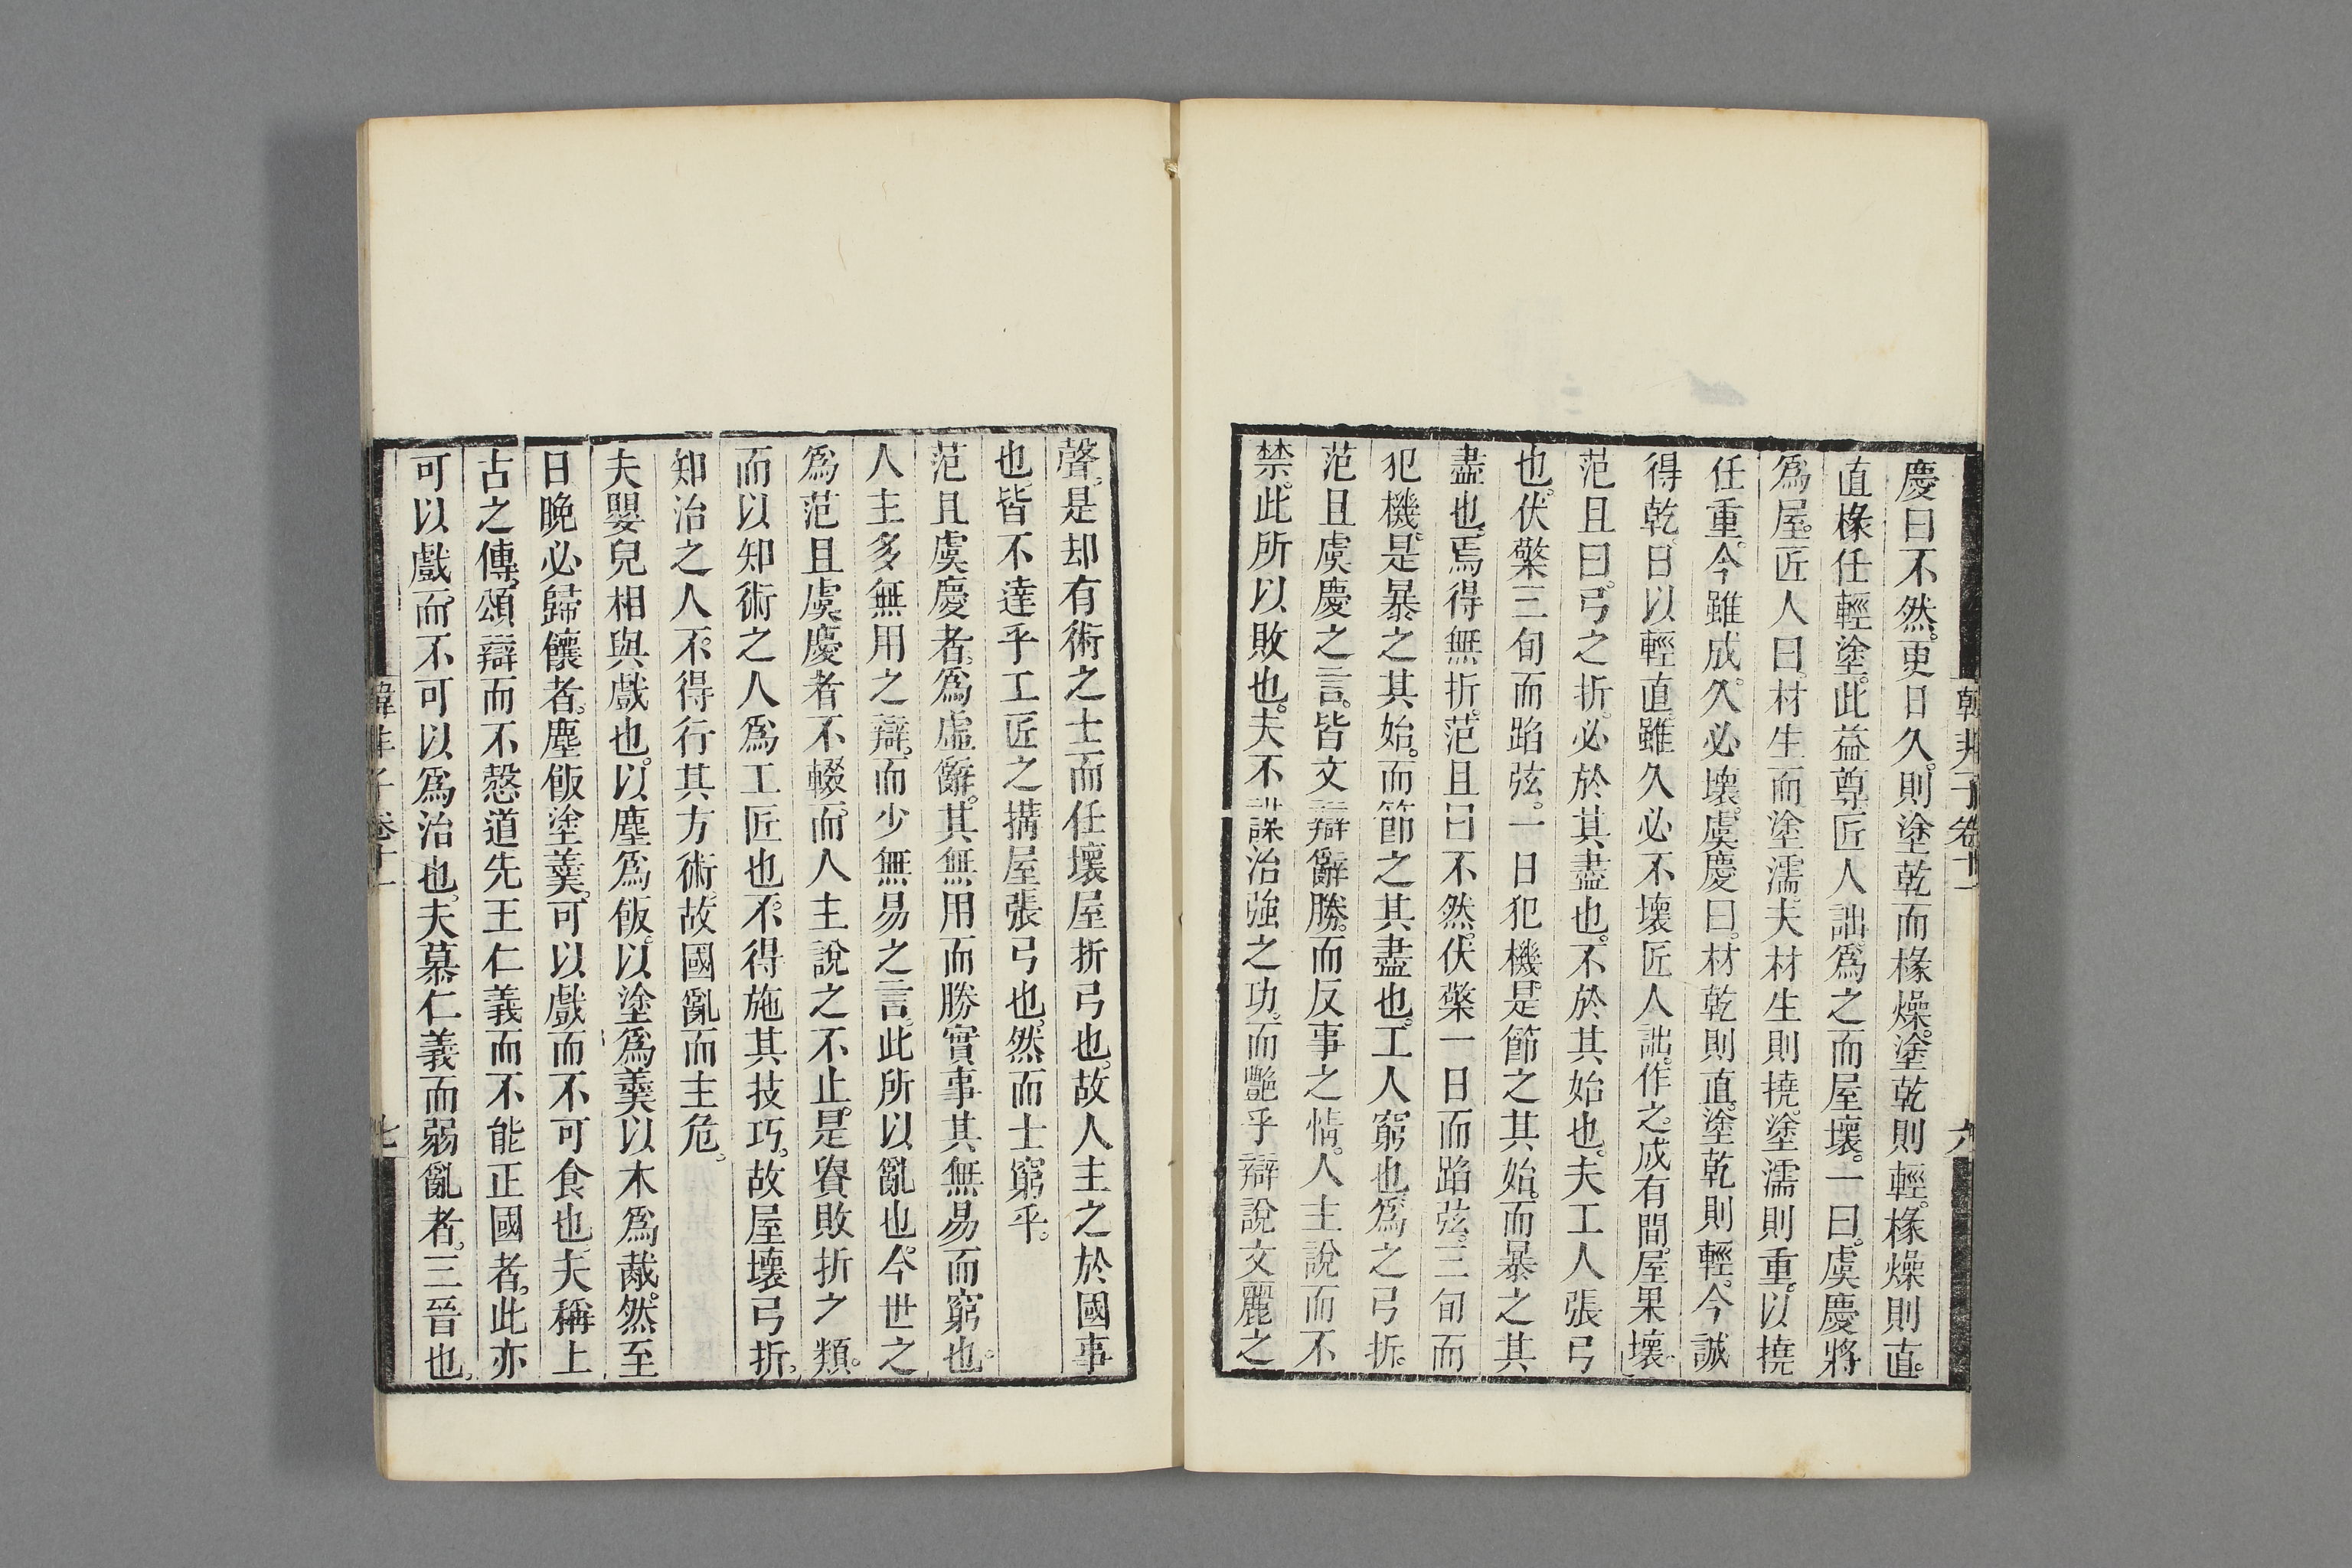 韓非子卷十一
六
慶曰不然。更日久。則塗乾而椽燥。塗乾則輕。椽燥則直。
直椽任輕塗。此益尊。匠人詘。爲之而屋壞。一曰。虞慶將
爲屋。匠人曰。材生而塗濡。夫材生則撓。塗濡則重。以撓
任重。今雖成。久必壞。虞慶曰。材乾則直。塗乾則輕。今誠
得乾。日以輕直。雖久必不壞。匠人詘。作之。成有間。屋果壞。
范且曰。弓之折。必於其盡也。不於其始也。夫工人張弓
也。伏檠三旬而蹈弦。一日犯機。是節之其始。而暴之其
盡也。焉得無折。范且曰不然。伏檠一日而蹈弦。三旬而
犯機。是暴之其始。而節之其盡也。工人窮也。爲之弓折。
范且虞慶之言。皆文辯辭勝。而反事之情。人主說而不
禁。此所以敗也。夫不謀治強之功。而艷乎辯說文麗之
聲。是却有術之士。而任壞屋折弓也。故人主之於國事
也。皆不達乎工匠之搆屋張弓也。然而士窮乎。
范且虞慶者。爲虛辭。其無用而勝。實事其無易而窮也。
人主多無用之辯。而少無易之言。此所以亂也。今世之
爲范且虞慶者不輟。而人主說之不止。是貴敗折之類。
而以知術之人爲工匠也。不得施其技巧。故屋壞弓折。
知治之人。不得行其方術。故國亂而主危。
夫嬰兒相與戲也。以塵爲飯。以塗爲羹。以木爲胾。然至
日晚必歸饟者。塵飯塗羹。可以戲而不可食也。夫稱上
古之傳。頌辯而不慤。道先王仁義而不能正國者。此亦
可以戲。而不可以爲治也。夫慕仁義而弱亂者。三晉也。
韓非子卷十一
七